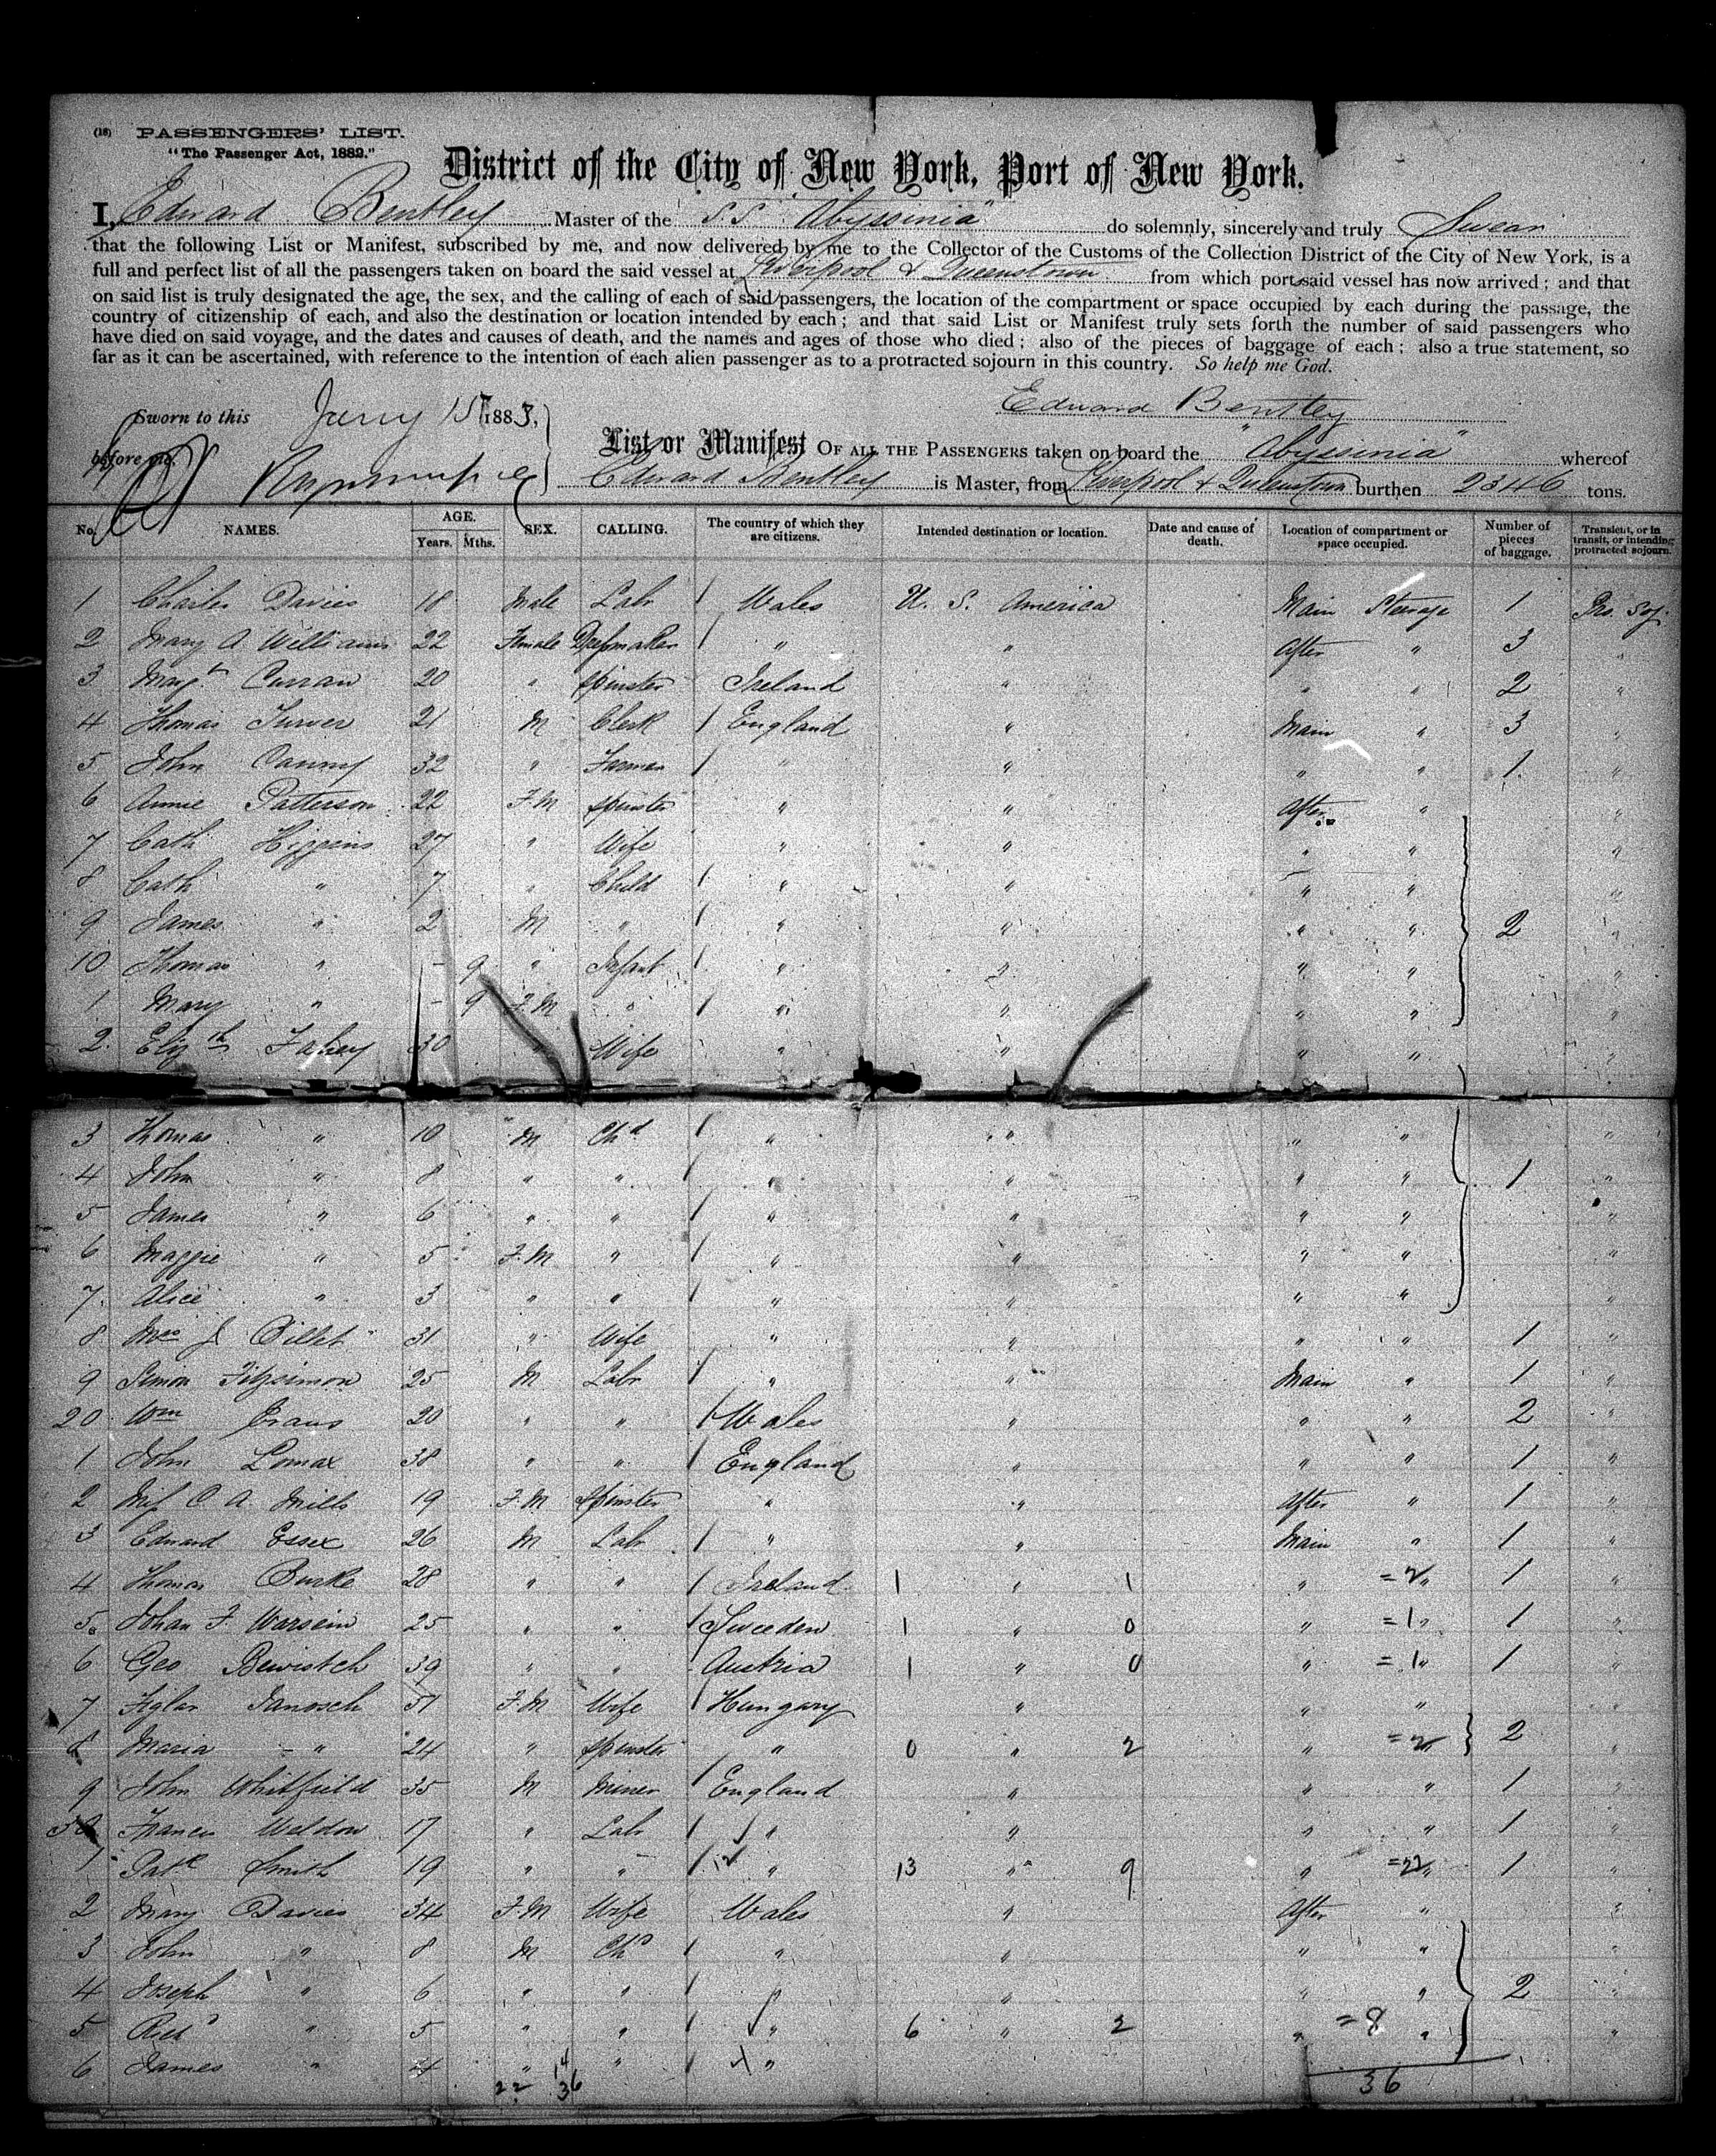 (18) PASSENGERS' LIST.
"The Passenger Act, 1882."
District of the City of New York, Port of New York.
I, Edward Bentley Master of the S.S "Abyssinia" do solemnly, sincerely and truly Swear
that the following List or Manifest, subscribed by me, and now delivered by me to the Collector of the Customs of the Collection District of the City of New York, is a
full and perfect list of all the passengers taken on board the said vessel at Liverpool & Queenstown from which port said vessel has now arrived; and that
on said list is truly designated the age, the sex, and the calling of each of said passengers, the location of the compartment or space occupied by each during the passage, the
country of citizenship of each, and also the destination or location intended by each; and that said List or Manifest truly sets forth the number of said passengers who
have died on said voyage, and the dates and causes of death, and the names and ages of those who died; also of the pieces of baggage of each; also a true statement, so
far as it can be ascertained, with reference to the intention of each alien passenger as to a protracted sojourn in this country. So help me God.
Edward Bentley
Sworn to this Jany 15 1883,
before me,
List or Manifest OF ALL THE PASSENGERS taken on board the "Abyssinia" whereof
Edward Bentley is Master, from Liverpool & Queenstown burthen 2346 tons.
No. NAMES. AGE. Years. Mths. SEX. CALLING. The country of which they are citizens. Intended destination or location. Date and cause of death. Location of compartment or space occupied. Number of pieces of baggage. Transient, or in transit, or intending protracted sojourn.
1 Charles Davies 18 Male Labr / Wales U. S. America Main Steerage 1 Pro. Soj.
2 Mary A Williams 22 Female Dressmaker / " " After " 3 "
3 Margt Curran 20 " Spinster Ireland " " " 2 "
4 Thomas Turver 21 M Clerk / England " Main " 3 "
5 John Canny 32 " Farmer / " " " " 1 "
6 Annie Patterson 22 F.M Spinster " " After " "
7 Cath Higgins 27 " Wife " " " " "
8 Cath " 7 " Child / " " " " "
9 James " 2 M " / " " " " 2 "
10 Thomas " - 9 " Infant / " " " " "
1 Mary " - 9 F.M " / " " " " "
2 Elizth Fahey 30 " Wife " " " " "
3 Thomas " 10 M Chd / " " " " "
4 John " 8 " " / " " " " 1 "
5 James " 6 " " / " " " " "
6 Maggie " 5 F.M " / " " " " "
7 Alice " 3 " " / " " " " "
8 Mrs J Billet 31 " Wife " " " " 1 "
9 Simon Fitzsimon 25 M Labr / " " Main " 1 "
20 Wm Evans 20 " " / Wales " " " 2 "
1 John Lomax 38 " " / England " " " 1 "
2 Miss C A Mills 19 F.M Spinster " " After " 1 "
3 Edward Essex 26 M Labr / " " Main " 1 "
4 Thomas Burke 28 " " / Ireland 1 " 1 " =2 " 1 "
5 Johan F Warsein 25 " " / Sweeden 1 " 0 " =1 " 1 "
6 Geo Bewistch 39 " " Austria 1 " 0 " =1 " 1 "
7 Janosch F.M Wife / Hungary " " "
8 Maria " 24 " Spinster " 0 " 2 " =2 " 2 "
9 John Whitfield 35 M Miner / England " " " 1 "
30 Francis Weldon 17 " Labr / " " " " 1 "
1 Patk Smith 19 " " / " 13 " 9 " =22 " 1 "
2 Mary Davies 34 F.M Wife Wales " After " "
3 John " 8 M Chd / " " " " "
4 Joseph " 6 " " / " " " " 2 "
5 Richd " 5 " " / " 6 " 2 " =8 " "
6 James " 4 " " / "
22 14 36 36